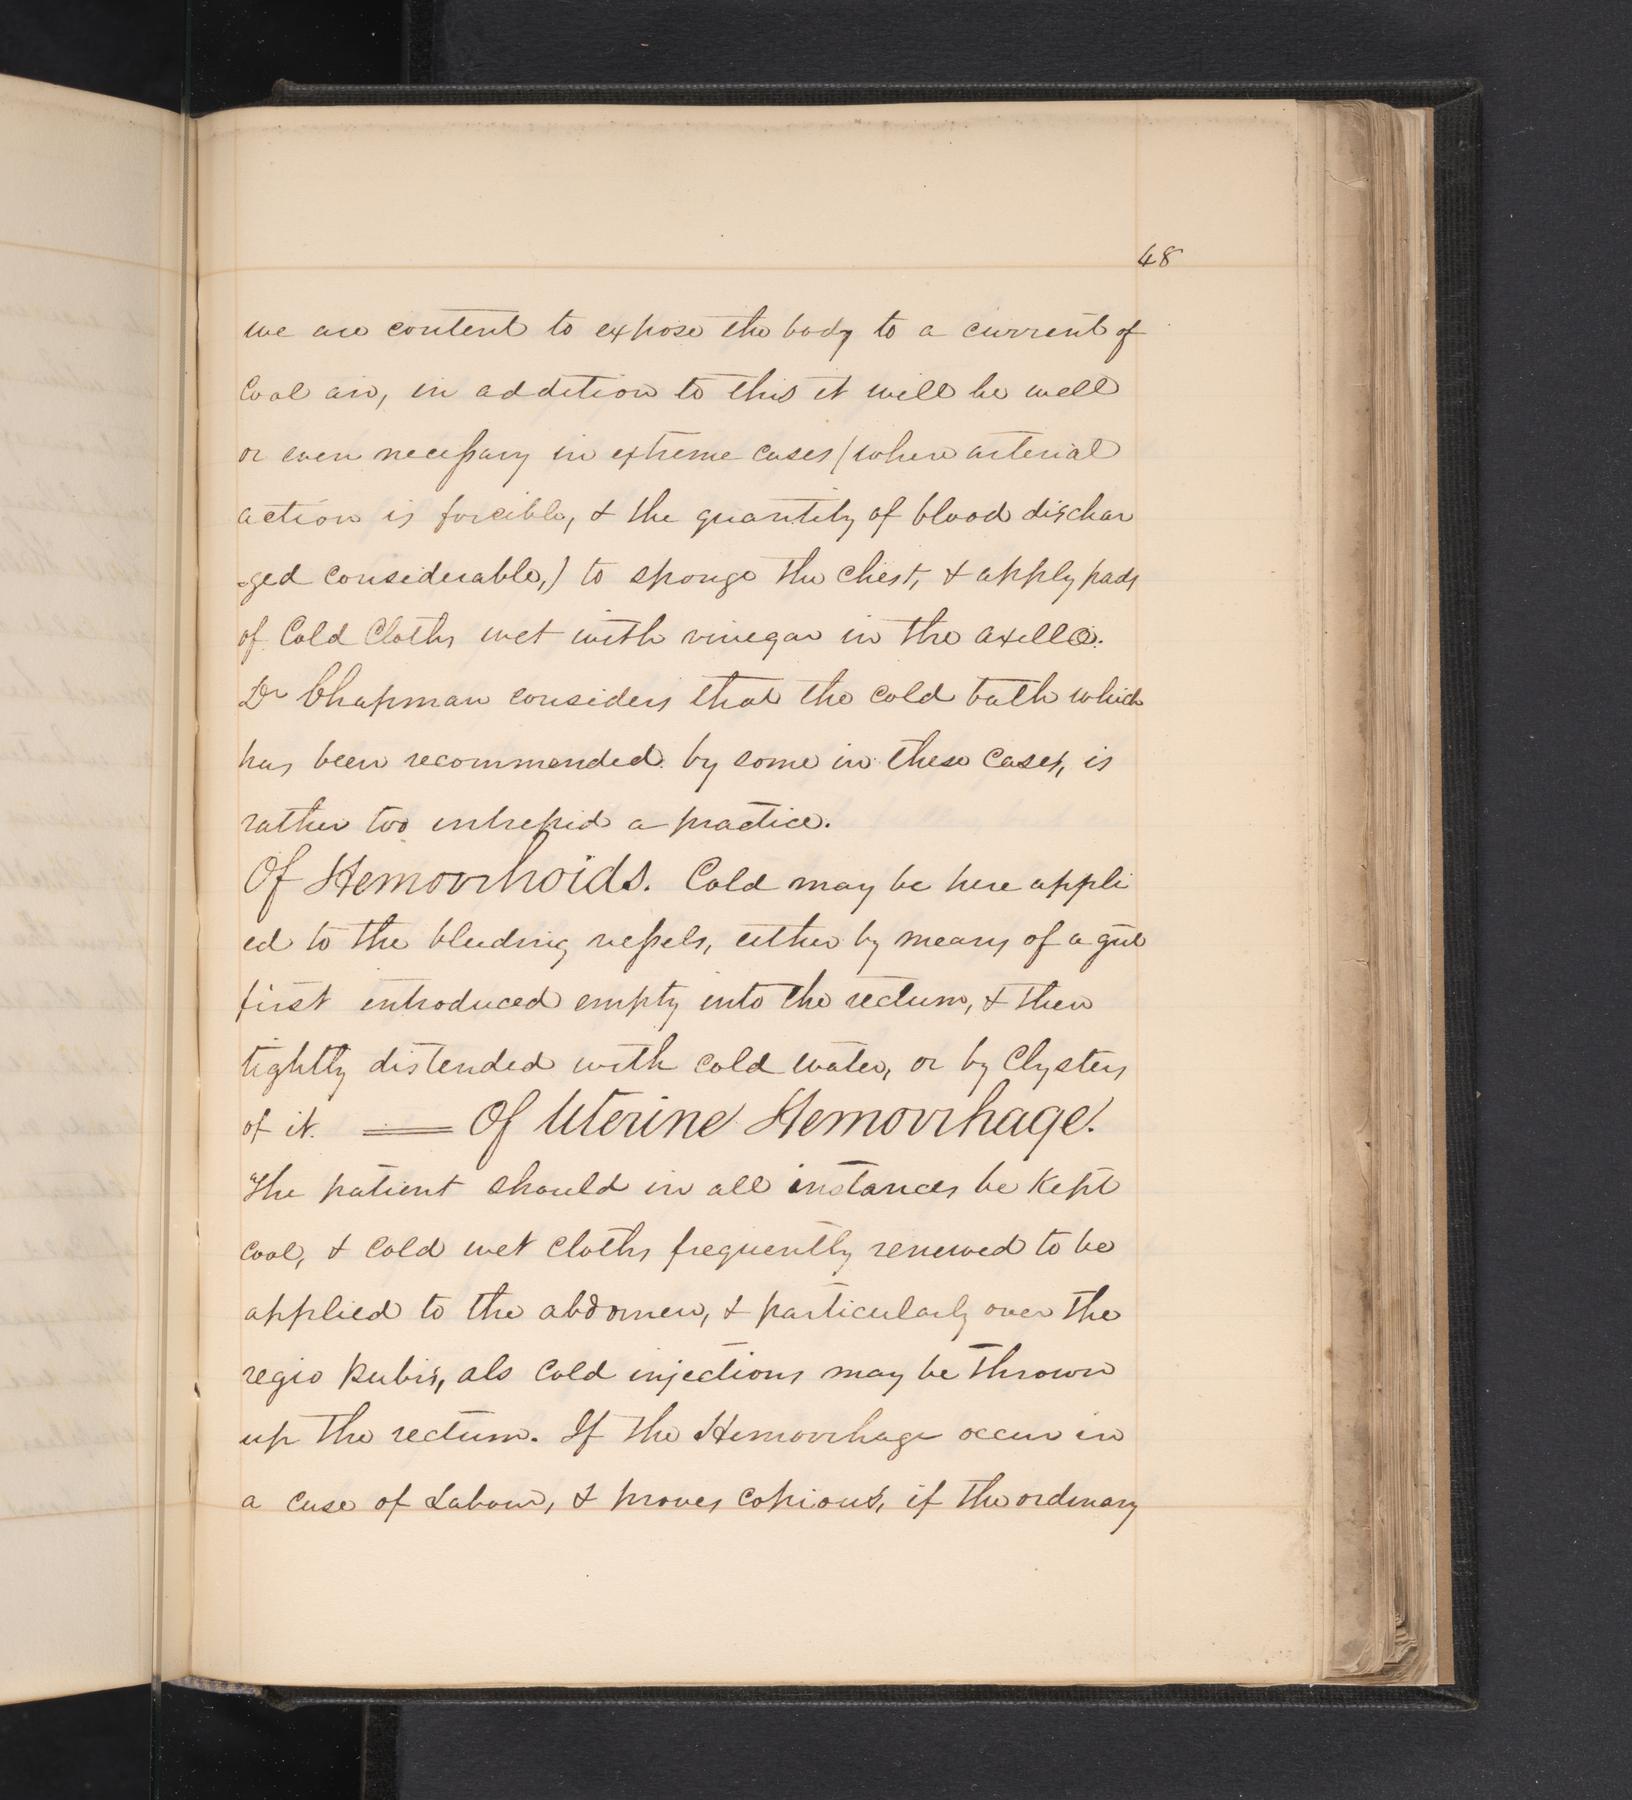 48
we are content to expose the body to a current of
Cool air, in addition to this it will be well
or even necessary in extreme cases (where arterial
action is forcible, & the quantity of blood dischar
-ged considerable,) to sponge the chest, & apply pads
of Cold Cloths wet with vinegar in the axilla.
Dr Chapman considers that the cold bath which
has been recommended by some in these Cases, is
rather too intrepid a practice.
Of Hemorrhoids. Cold may be here appli
ed to the bleeding vessels, either by means of a gut
first introduced empty into the rectum, & then
tightly distended with cold water, or by Clysters
of it. == Of Uterine Hemorrhage.
The patient should in all instances be Kept
cool, & Cold wet cloths frequently renewed to be
applied to the abdomen, & particularly over the
regio Pubis, als Cold injections may be thrown
up the rectum. If the Hemorrhage occur in
a case of Labour, & proves Copious, if the ordinary